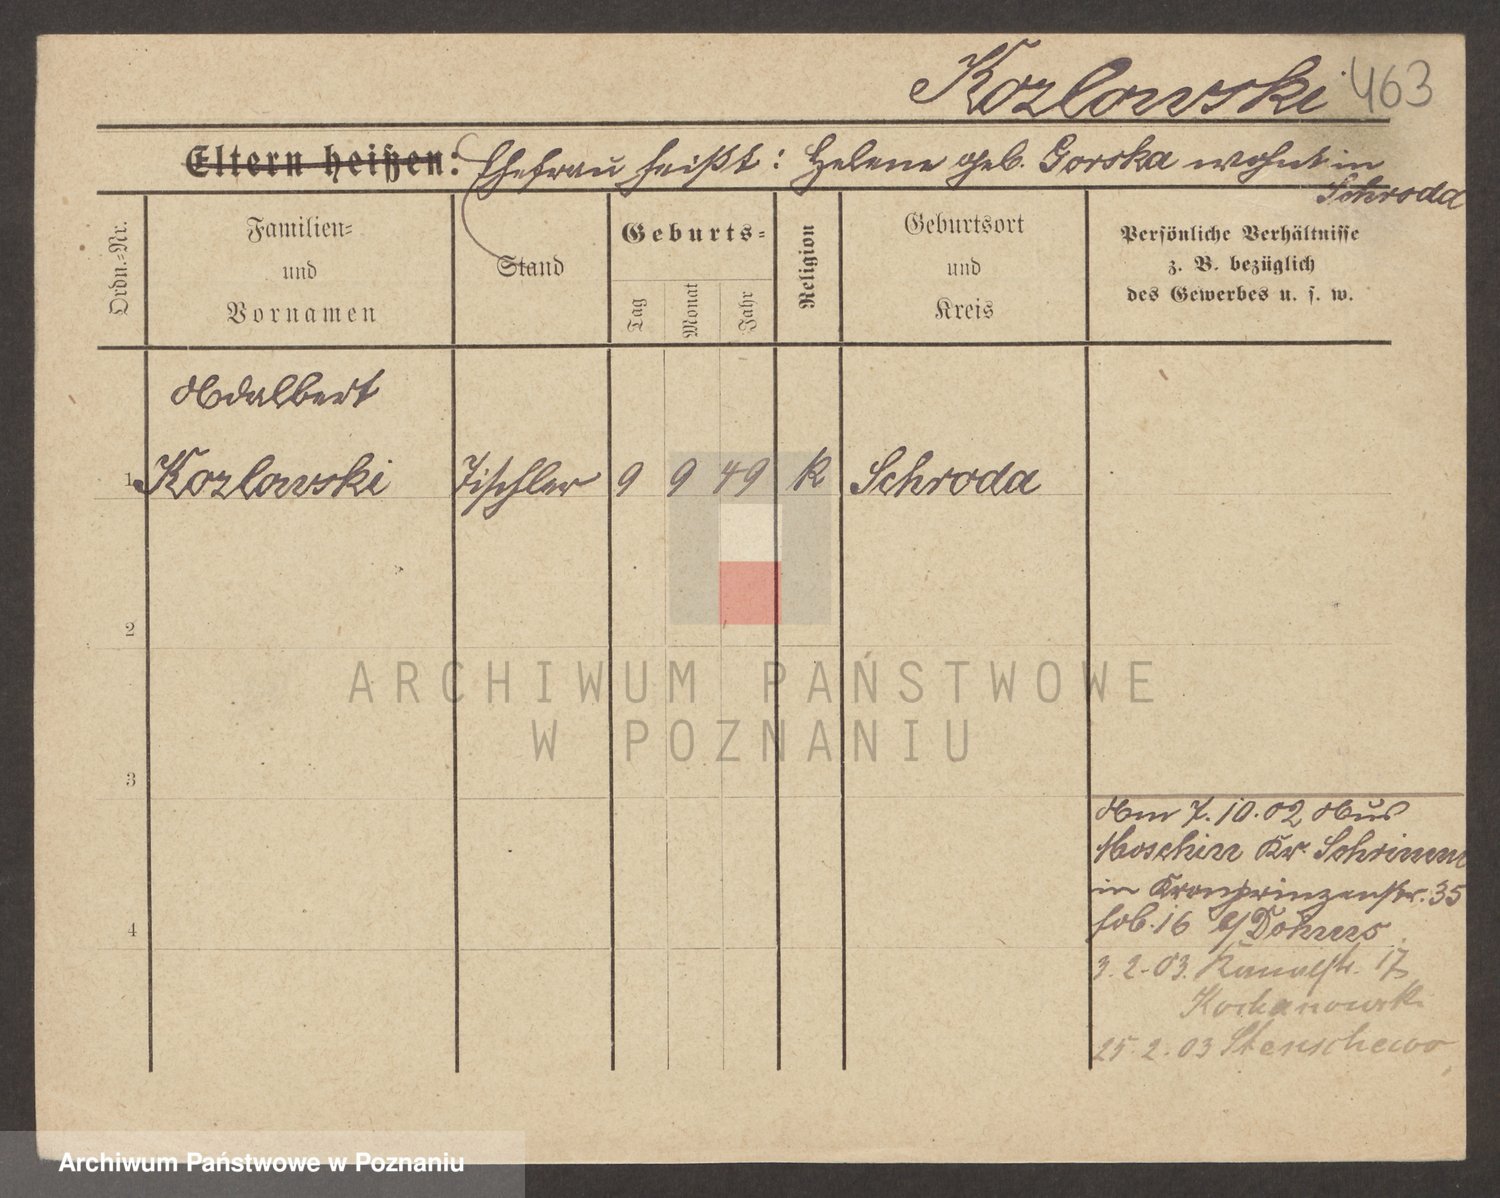 Kozlowski 463
Eltern heißen: Ehefrau heißt: Helene geb. Gorska wohnt in
Schroda
Ordn.-Nr.
Familien-
und
Vornamen
Stand
Geburts-
Tag
Monat
Jahr
Religion
Geburtsort
und
Kreis
Persönliche Verhältnisse
z. B. bezüglich
des Gewerbes u. s. w.
Adalbert
1 Kozlowski Tischler 9 9 49 K Schroda
2
ARCHIWUM PAŃSTWOWE
W POZNANIU
3
Am 7.10.02 Aus
Moschin Kr. Schrimm
in Kronprinzenstr. 35
4
16
3.2.03. Kanalstr. 17
Kochanowski
25.2.03 Stenschewo
Archiwum Państwowe w Poznaniu